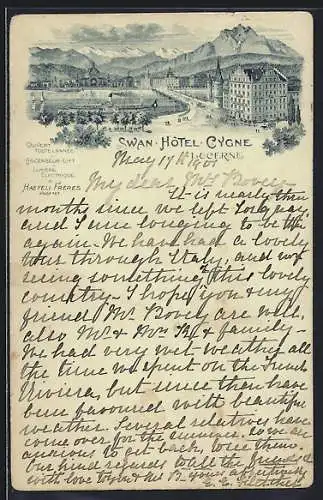 SWAN-HÔTEL-CYGNE
LUCERNE
OUVERT
TOUTE L'ANNÉE
ASCENSEUR-LIFT
LUMIÈRE
ELECTRIQUE
HAEFELI FRÈRES
PROPRT
May 17th 1901
My dear Mrs Bovey
It is nearly three
months since we left
and I am longing to be there
again. We have had a lovely
tour through Italy, and now
seeing something of this lovely
country. I hope you & my
friend Mr Bovey are well,
also Mr & Mrs & family
We had very wet weather all
the time we spent on the French
Riviera, but since then have
been favoured with beautiful
weather. Several relatives have
come over for the summer. so we are
anxious to get back, to see them.
our kind regards to all the friends &
with love to you & Mr B. yours affectionately